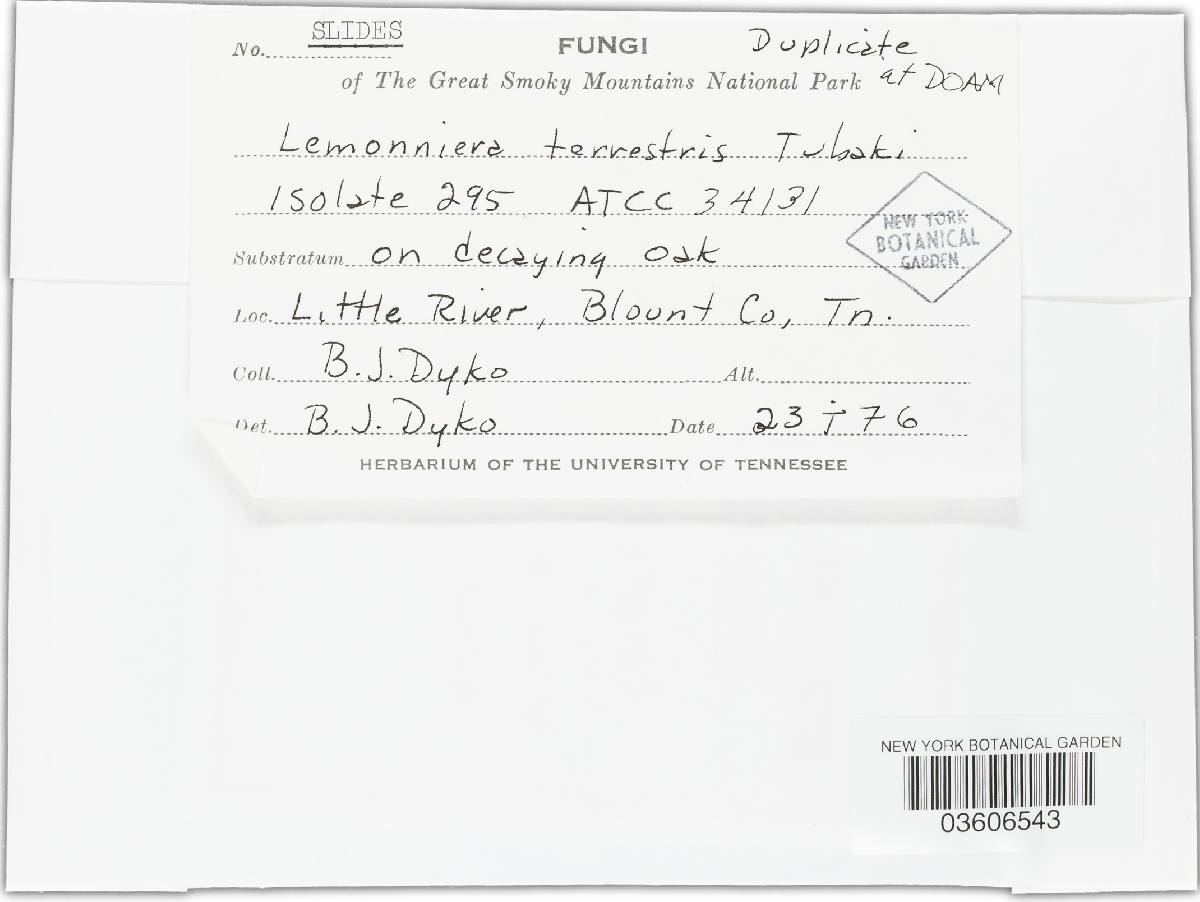 No. SLIDES
FUNGI
Duplicate
at DOAM
of The Great Smoky Mountains National Park
Lemonniera terrestris Tubaki
Isolate 295 ATCC 34131
NEW YORK
BOTANICAL
GARDEN
Substratum on decaying oak
Loc. Little River, Blount Co, Tn.
Coll. B.J. Dyko Alt.
Det. B. J. Dyko Date 23 i 76
HERBARIUM OF THE UNIVERSITY OF TENNESSEE
NEW YORK BOTANICAL GARDEN
03606543